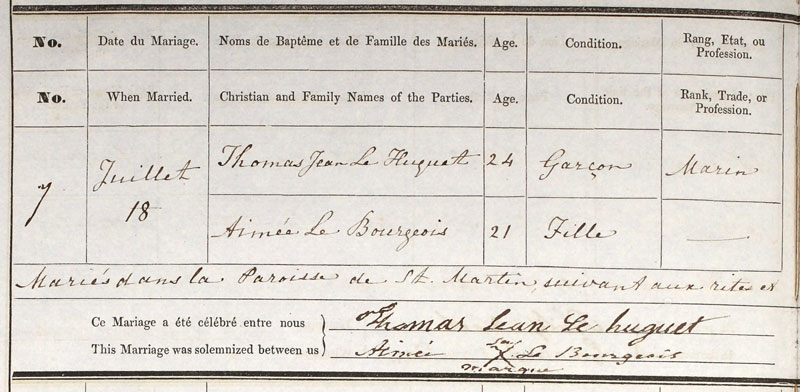 No. Date du Mariage. Noms de Baptême et de Famille des Mariés. Age. Condition. Rang, Etat, ou Profession.
No. When Married. Christian and Family Names of the Parties. Age. Condition. Rank, Trade, or Profession.
7 Juillet 18 Thomas Jean Le Huguet 24 Garçon Marin
Aimée Le Bourgeois 21 Fille
Mariés dans la Paroisse de St. Martin, suivant aux rites et
Ce Mariage a été célébré entre nous } Thomas Jean Le huguet
This Marriage was solemnized between us } Aimée sa X Le Bourgeois
marque